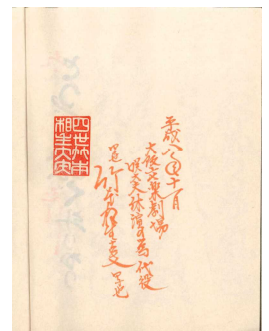 平成八年十一月
大阪文楽劇場
咲大夫休演の為代役
四世竹本相生大夫
四世竹本
相生大夫